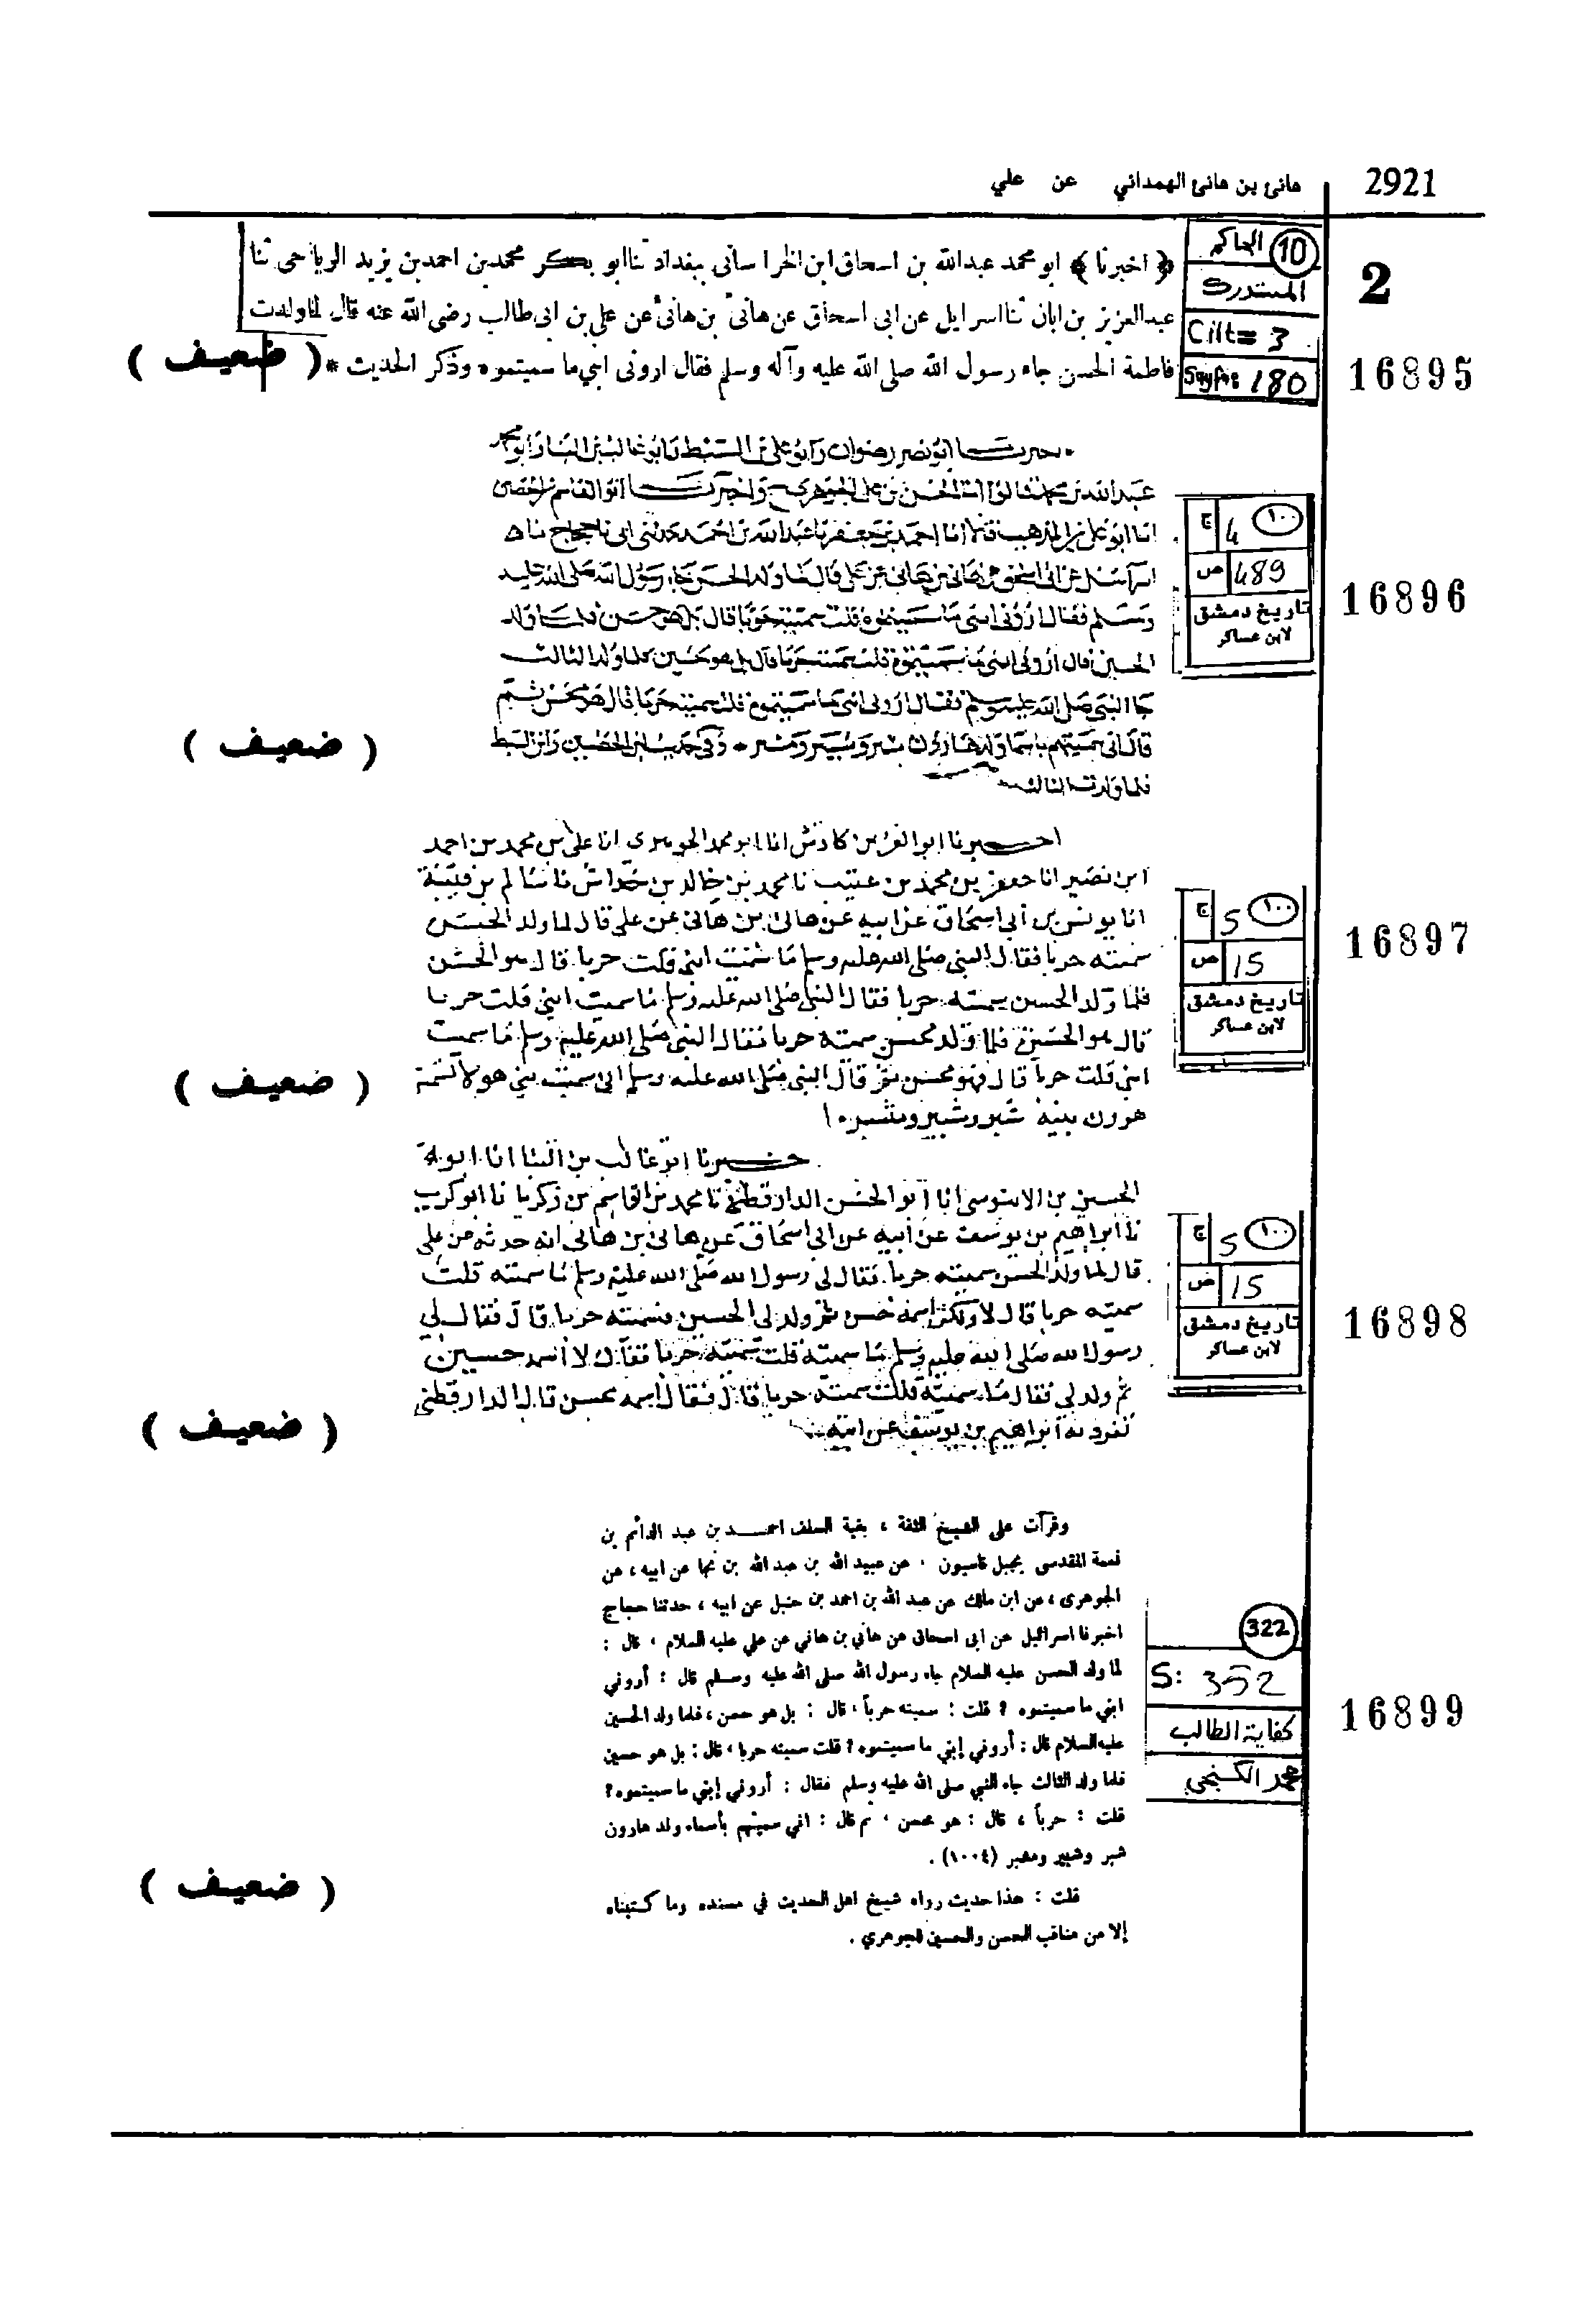 2921
هانئ بن هانئ الهمداني عن علي
10 الحاكم
المستدرك
Cilt= 3
Sayfa: 180
2
16895
﴿ اخبرنا ﴾ ابو محمد عبدالله بن اسحاق ابن الخراسانى ببغداد ثنا ابو بكر محمد بن احمد بن يزيد الرياحى ثنا
عبدالعزيز بن ابان ثنا اسرايل عن ابى اسحاق عن هانئ بن هانئ عن على بن ابى طالب رضى الله عنه قال لما ولدت
فاطمة الحسن جاء رسول الله صلى الله عليه وآله وسلم فقال ارونى ابنى ما سميتموه وذكر الحديث *
( ضعيف )
١٠٠ ج 4
ص 489
تاريخ دمشق
لابن عساكر
16896
عبد الله بن محمد قالوا انا الحسن بن على الجوهرى واخبرنا ابو القاسم بن الحصين
انا ابو على بن المذهب قالا انا احمد بن جعفر نا عبد الله بن احمد حدثنى ابى نا حجاج نا
اسرائيل عن ابى اسحق عن هانى بن هانى عن على قال لما ولد الحسن جا رسول الله صلى الله عليه
وسلم فقال ارونى ابنى ما سميتموه قلت سميته حربا قال بل هو حسن فلما ولد
الحسين قال ارونى ابنى ما سميتموه قلت سميته حربا قال بل هو حسين فلما ولد الثالث
جا النبى صلى الله عليه وسلم فقال ارونى ابنى ما سميتموه قلت سميته حربا قال هو محسن ثم
قال انى سميتهم باسما ولد هارون شبر وشبير ومشبر • وفى حديث ابن الحصين وابن السبط
فلما ولدت الثالث
( ضعيف )
١٠٠ ج 5
ص 15
تاريخ دمشق
لابن عساكر
16897
اخبرنا ابو العز بن كادش انا ابو محمد الجوهرى انا على بن محمد بن احمد
ابن نصير انا جعفر بن محمد بن عتيب نا محمد بن خالد بن خداش نا سالم بن قتيبة
انا يونس بن ابى اسحاق عن ابيه عن هانى بن هانى عن على قال لما ولد الحسن
سميته حربا فقال النبى صلى الله عليه وسلم ما سميت ابنى قلت حربا قال هو الحسن
فلما ولد الحسين سميته حربا فقال النبى صلى الله عليه وسلم ما سميت ابنى قلت حربا
قال هو الحسين فلما ولد محسن سميته حربا فقال النبى صلى الله عليه وسلم ما سميت
ابنى قلت حربا قال فهو محسن ثم قال النبى صلى الله عليه وسلم انى سميت بنى هولا تسمية
هورن بنيه شبر وشبير ومشبر
( ضعيف )
١٠٠ ج 5
ص 15
تاريخ دمشق
لابن عساكر
16898
اخبرنا ابو غالب بن البنا انا ابو
الحسين بن الابنوسى انا ابو الحسن الدارقطنى نا محمد بن القاسم بن زكريا نا ابو كريب
نا ابراهيم بن يوسف عن ابيه عن ابى اسحاق عن هانى بن هانى انه حدثه عن على
قال لما ولد الحسن سميته حربا فقال لى رسول الله صلى الله عليه وسلم ما سميته قلت
سميته حربا قال لا ولكن اسمه حسن ثم ولد لى الحسين فسميته حربا قال فقال لى
رسول الله صلى الله عليه وسلم ما سميته قلت سميته حربا فقال لا اسمه حسين
ثم ولد لى فقال ما سميته قلت سميته حربا قال فقال اسمه محسن قال الدارقطنى
تفرد به ابراهيم بن يوسف عن ابيه
( ضعيف )
322
S: 352
كفاية الطالب
محمد الكنجي
16899
وقرأت على الشيخ الثقة ، بقية السلف احمد بن عبد الدائم بن
نعمة المقدسى بجبل قاسيون ، عن عبيد الله بن عبد الله بن نجا عن ابيه ، عن
الجوهرى ، عن ابن مالك عن عبد الله بن احمد بن حنبل عن ابيه ، حدثنا حجاج
اخبرنا اسرائيل عن ابى اسحاق عن هاني بن هاني عن علي عليه السلام ، قال :
لما ولد الحسن عليه السلام جاء رسول الله صلى الله عليه وسلم قال : أروني
ابني ما سميتموه ؟ قلت : سميته حرباً ، قال : بل هو حسن ، فلما ولد الحسين
عليه السلام قال : أروني إبني ما سميتموه ؟ قلت سميته حربا ، قال : بل هو حسين
فلما ولد الثالث جاء النبي صلى الله عليه وسلم فقال : أروني إبني ما سميتموه ؟
قلت : حرباً ، قال : هو محسن ، ثم قال : اني سميتهم بأسماء ولد هارون
شبر وشبير ومشبر (١٠٠٤) .
قلت : هذا حديث رواه شيخ اهل الحديث في مسنده وما كتبناه
إلا من مناقب الحسن والحسين للجوهري .
( ضعيف )